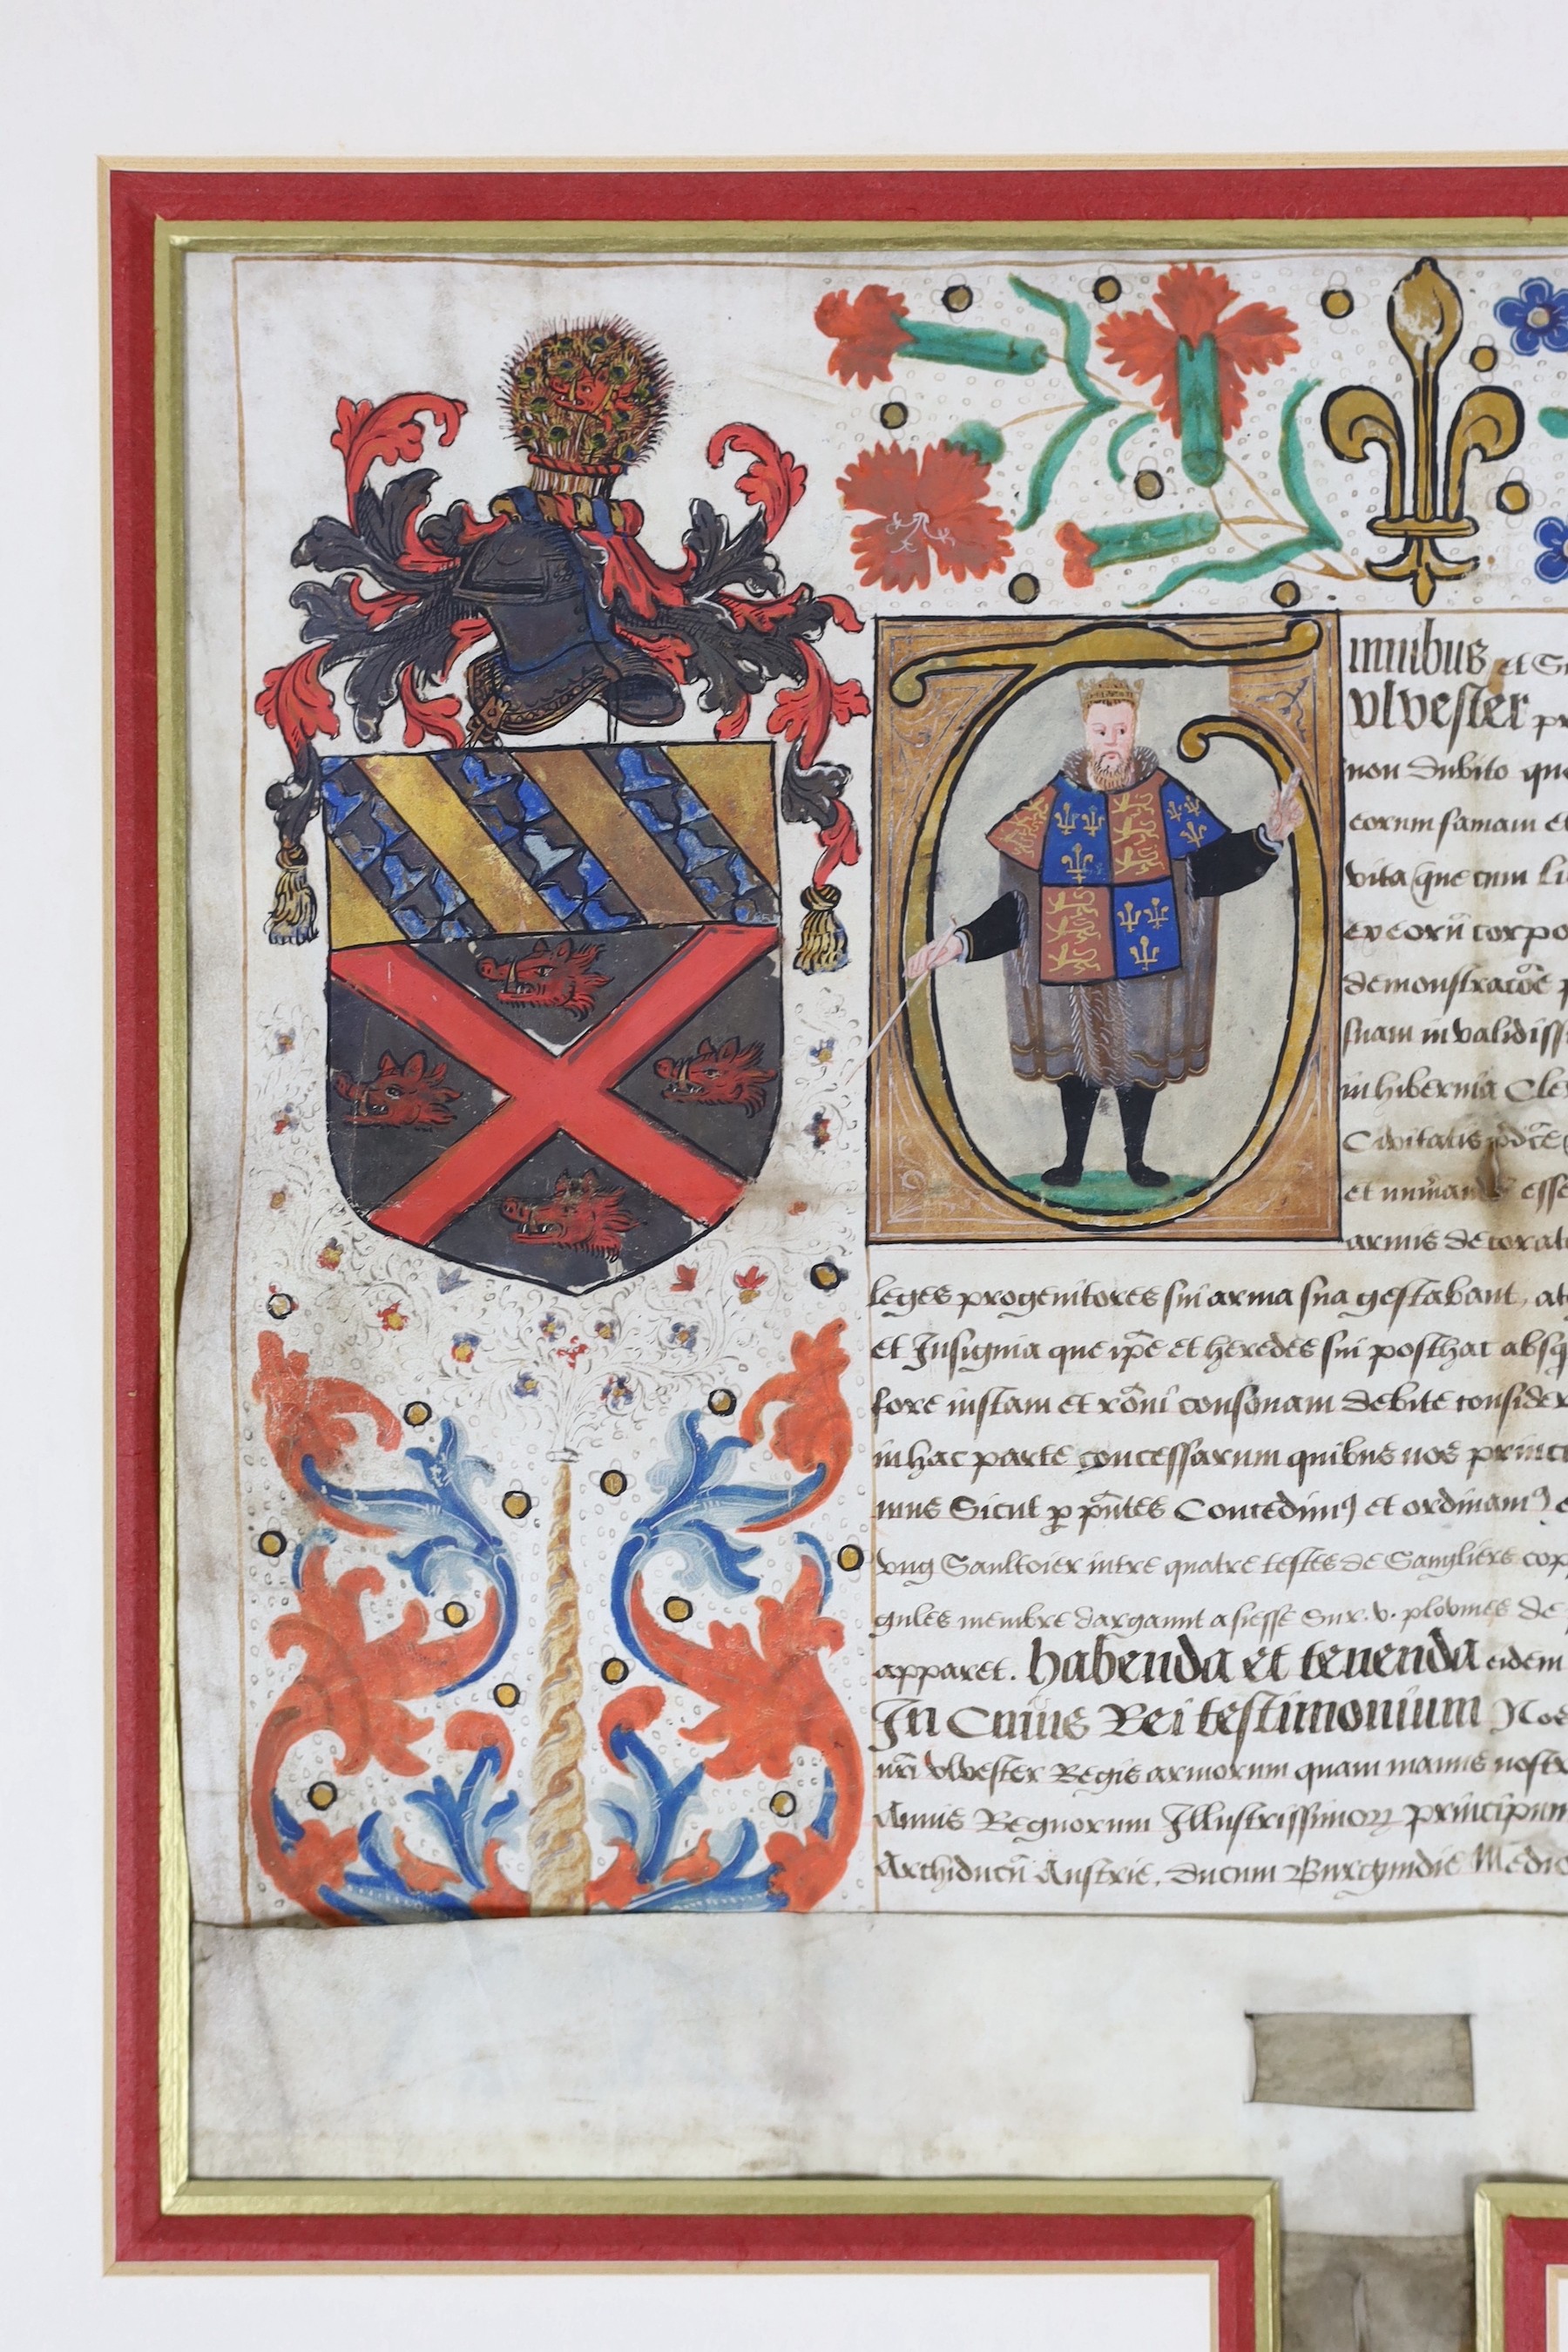 mnibus et
vlvester
non dubito que
eorum famam et
vita que cum
ex eorum corpo
demonstracoe
suam in validiss
in hibernia Cle
Civitatis pdce
et nuncian esse
armis decorat
leges progenitores sui arma sua gestabant, at
et Insignia que ipe et heredes sui posthac absq
fore iustam et roni consonam debite consider
in hac parte concessarum quibus nos princi
mus Sicut p pntes Concedim9 et ordinam9
vng Saultoier intre quatre testes de Sangliers cop
gules membre dargaunt assesse Sur .v. ploumes de
apparet. Habenda et tenenda eidem
In Cuius Rei testimonium Nos
nri vlvester Regis armorum quam manus nostr
Annis Regnorum Illustrissimor principum
Archiducu Austrie, ducum Burgundie Medio